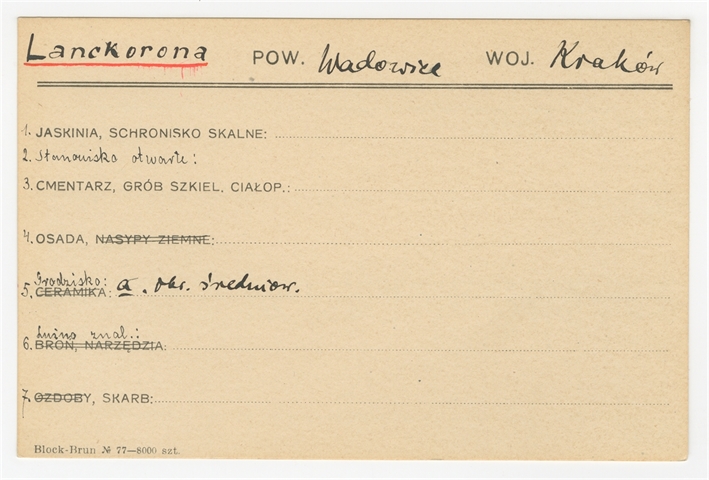 Lanckorona POW. Wadowice WOJ. Kraków
1. JASKINIA, SCHRONISKO SKALNE:
2. Stanowisko otwarte:
3. CMENTARZ, GRÓB SZKIEL. CIAŁOP.:
4. OSADA, NASYPY ZIEMNE:
Grodzisko: a. okr. średniow.
5. CERAMIKA:
Luźno znal.:
6. BROŃ, NARZĘDZIA:
7. OZDOBY, SKARB:
Block-Brun № 77—8000 szt.